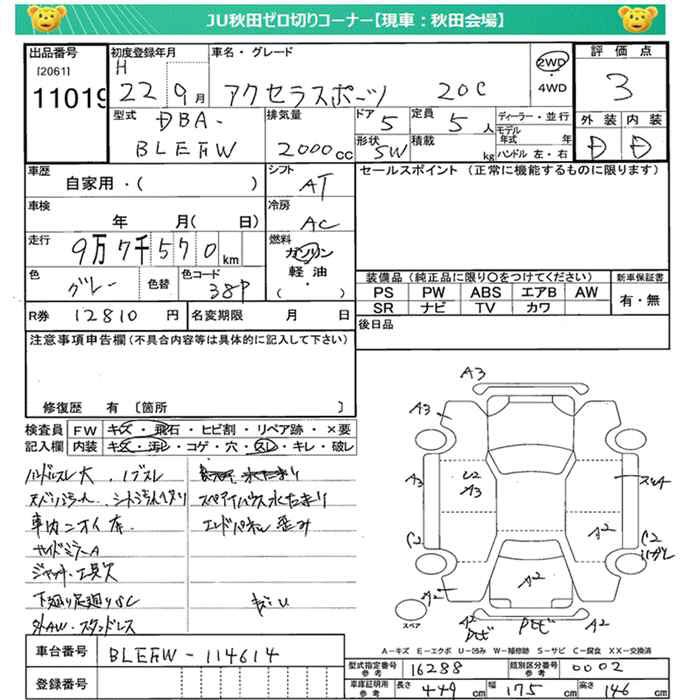 JU秋田ゼロ切りコーナー【現車：秋田会場】
出品番号
[2061]
11019
初度登録年月
H
22 9月
車名・グレード
アクセラスポーツ 20C
2WD
・
4WD
評価点
3
型式
DBA-
BLEFW
排気量
2000cc
ドア
5
定員
5人
形状
SW
積載
kg
ディーラー・並行
モデル
年式 年
ハンドル 左・右
外装 内装
D D
車歴
自家用・( )
シフト
AT
セールスポイント（正常に機能するものに限ります）
車検
年 月( 日)
冷房
AC
走行
9万7千570km
燃料
ガソリン
軽油
・
( )
色
グレー
色替
色コード
38P
装備品（純正品に限り○をつけてください）
PS PW ABS エアB AW
SR ナビ TV カワ
新車保証書
有・無
R券 12810円
名変期限 月 日
後日品
注意事項申告欄(不具合内容等は具体的に記入して下さい)
修復歴 有 〔箇所 〕
検査員
記入欄
FW キズ・飛石・ヒビ割・リペア跡・×要
内装 キズ・汚レ・コゲ・穴・スレ・キレ・破レ
ハンドルスレ大
水たまり
スペアハウス水たまり
エンドパネル歪み
車内ニオイ
サイドミラーA
下廻り足廻りSC
スタッドレス
A3
A3
A3
U2
A3
C2
A2
A2
A2
A2
C2
スペア
A－キズ E－エクボ U－凹み W－補修跡 S－サビ C－腐食 XX－交換済
車台番号
BLEFW-114614
登録番号
型式指定番号
参考
16288
類別区分番号
参考
0002
車庫証明用
参考
長さ 449cm
幅 175cm
高さ 146cm